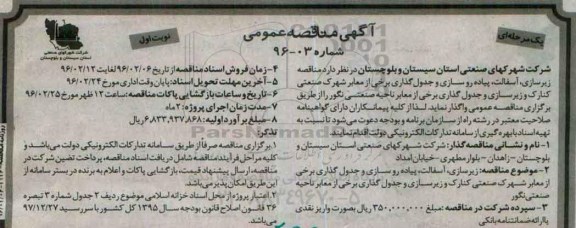 نوبت اول
آگهی مناقصه عمومی
شماره ۰۳-۹۶
یک مرحله‌ای
شرکت شهرکهای صنعتی
استان سیستان و بلوچستان
شرکت شهرکهای صنعتی استان سیستان و بلوچستان در نظر دارد مناقصه
زیرسازی، آسفالت، پیاده رو سازی و جدول گذاری برخی از معابر شهرک صنعتی
کنارک و زیرسازی و جدول گذاری برخی از معابر ناحیه صنعتی نگور را از طریق
برگزاری مناقصه عمومی واگذار نماید. لذا از کلیه پیمانکاران دارای گواهینامه
صلاحیت معتبر در رشته راه از سازمان برنامه و بودجه دعوت می‌شود تا نسبت به
تهیه اسناد با بهره گیری از سامانه تدارکات الکترونیکی دولت اقدام نمایند.
۱- نام و نشانی مناقصه گذار: شرکت شهرکهای صنعتی استان سیستان و
بلوچستان - زاهدان - بلوار مطهری - خیابان امداد
۲- موضوع مناقصه: زیرسازی، آسفالت، پیاده رو سازی و جدول گذاری برخی
از معابر شهرک صنعتی کنارک و زیرسازی و جدول گذاری برخی از معابر ناحیه
صنعتی نگور
۳- سپرده شرکت در مناقصه: مبلغ ۳۵۰,۰۰۰,۰۰۰ ریال بصورت واریز نقدی
یا ارائه ضمانتنامه بانکی
۴- زمان فروش اسناد مناقصه: از تاریخ ۹۶/۰۲/۰۶ لغایت ۹۶/۰۲/۱۲
۵- آخرین مهلت تحویل اسناد: پایان وقت اداری مورخ ۹۶/۰۲/۲۴
۶- تاریخ و ساعات بازگشایی پاکات مناقصه: ساعت ۱۲ ظهر مورخ ۹۶/۰۲/۲۵
۷- مدت زمان اجرای پروژه: ۲ ماه
۸- مبلغ برآورد اولیه: ۶,۸۳۳,۹۳۷,۸۶۸ ریال
تذکر:
۱. برگزاری مناقصه صرفا از طریق سامانه تدارکات الکترونیکی دولت می‌باشد و
کلیه مراحل فرآیند مناقصه شامل دریافت اسناد مناقصه، پرداخت تضمین شرکت در
مناقصه، ارسال پیشنهاد قیمت، بازگشایی پاکات و اعلام به برنده در بستر سامانه از
این طریق امکان پذیر می‌باشد.
۲. اعتبار پروژه از محل اسناد خزانه اسلامی موضوع ردیف ۲ جدول شماره ۳ تبصره
۳۶ قانون اصلاح قانون بودجه سال ۱۳۹۵ کل کشور با سررسید ۹۷/۱۲/۲۷
می‌باشد.